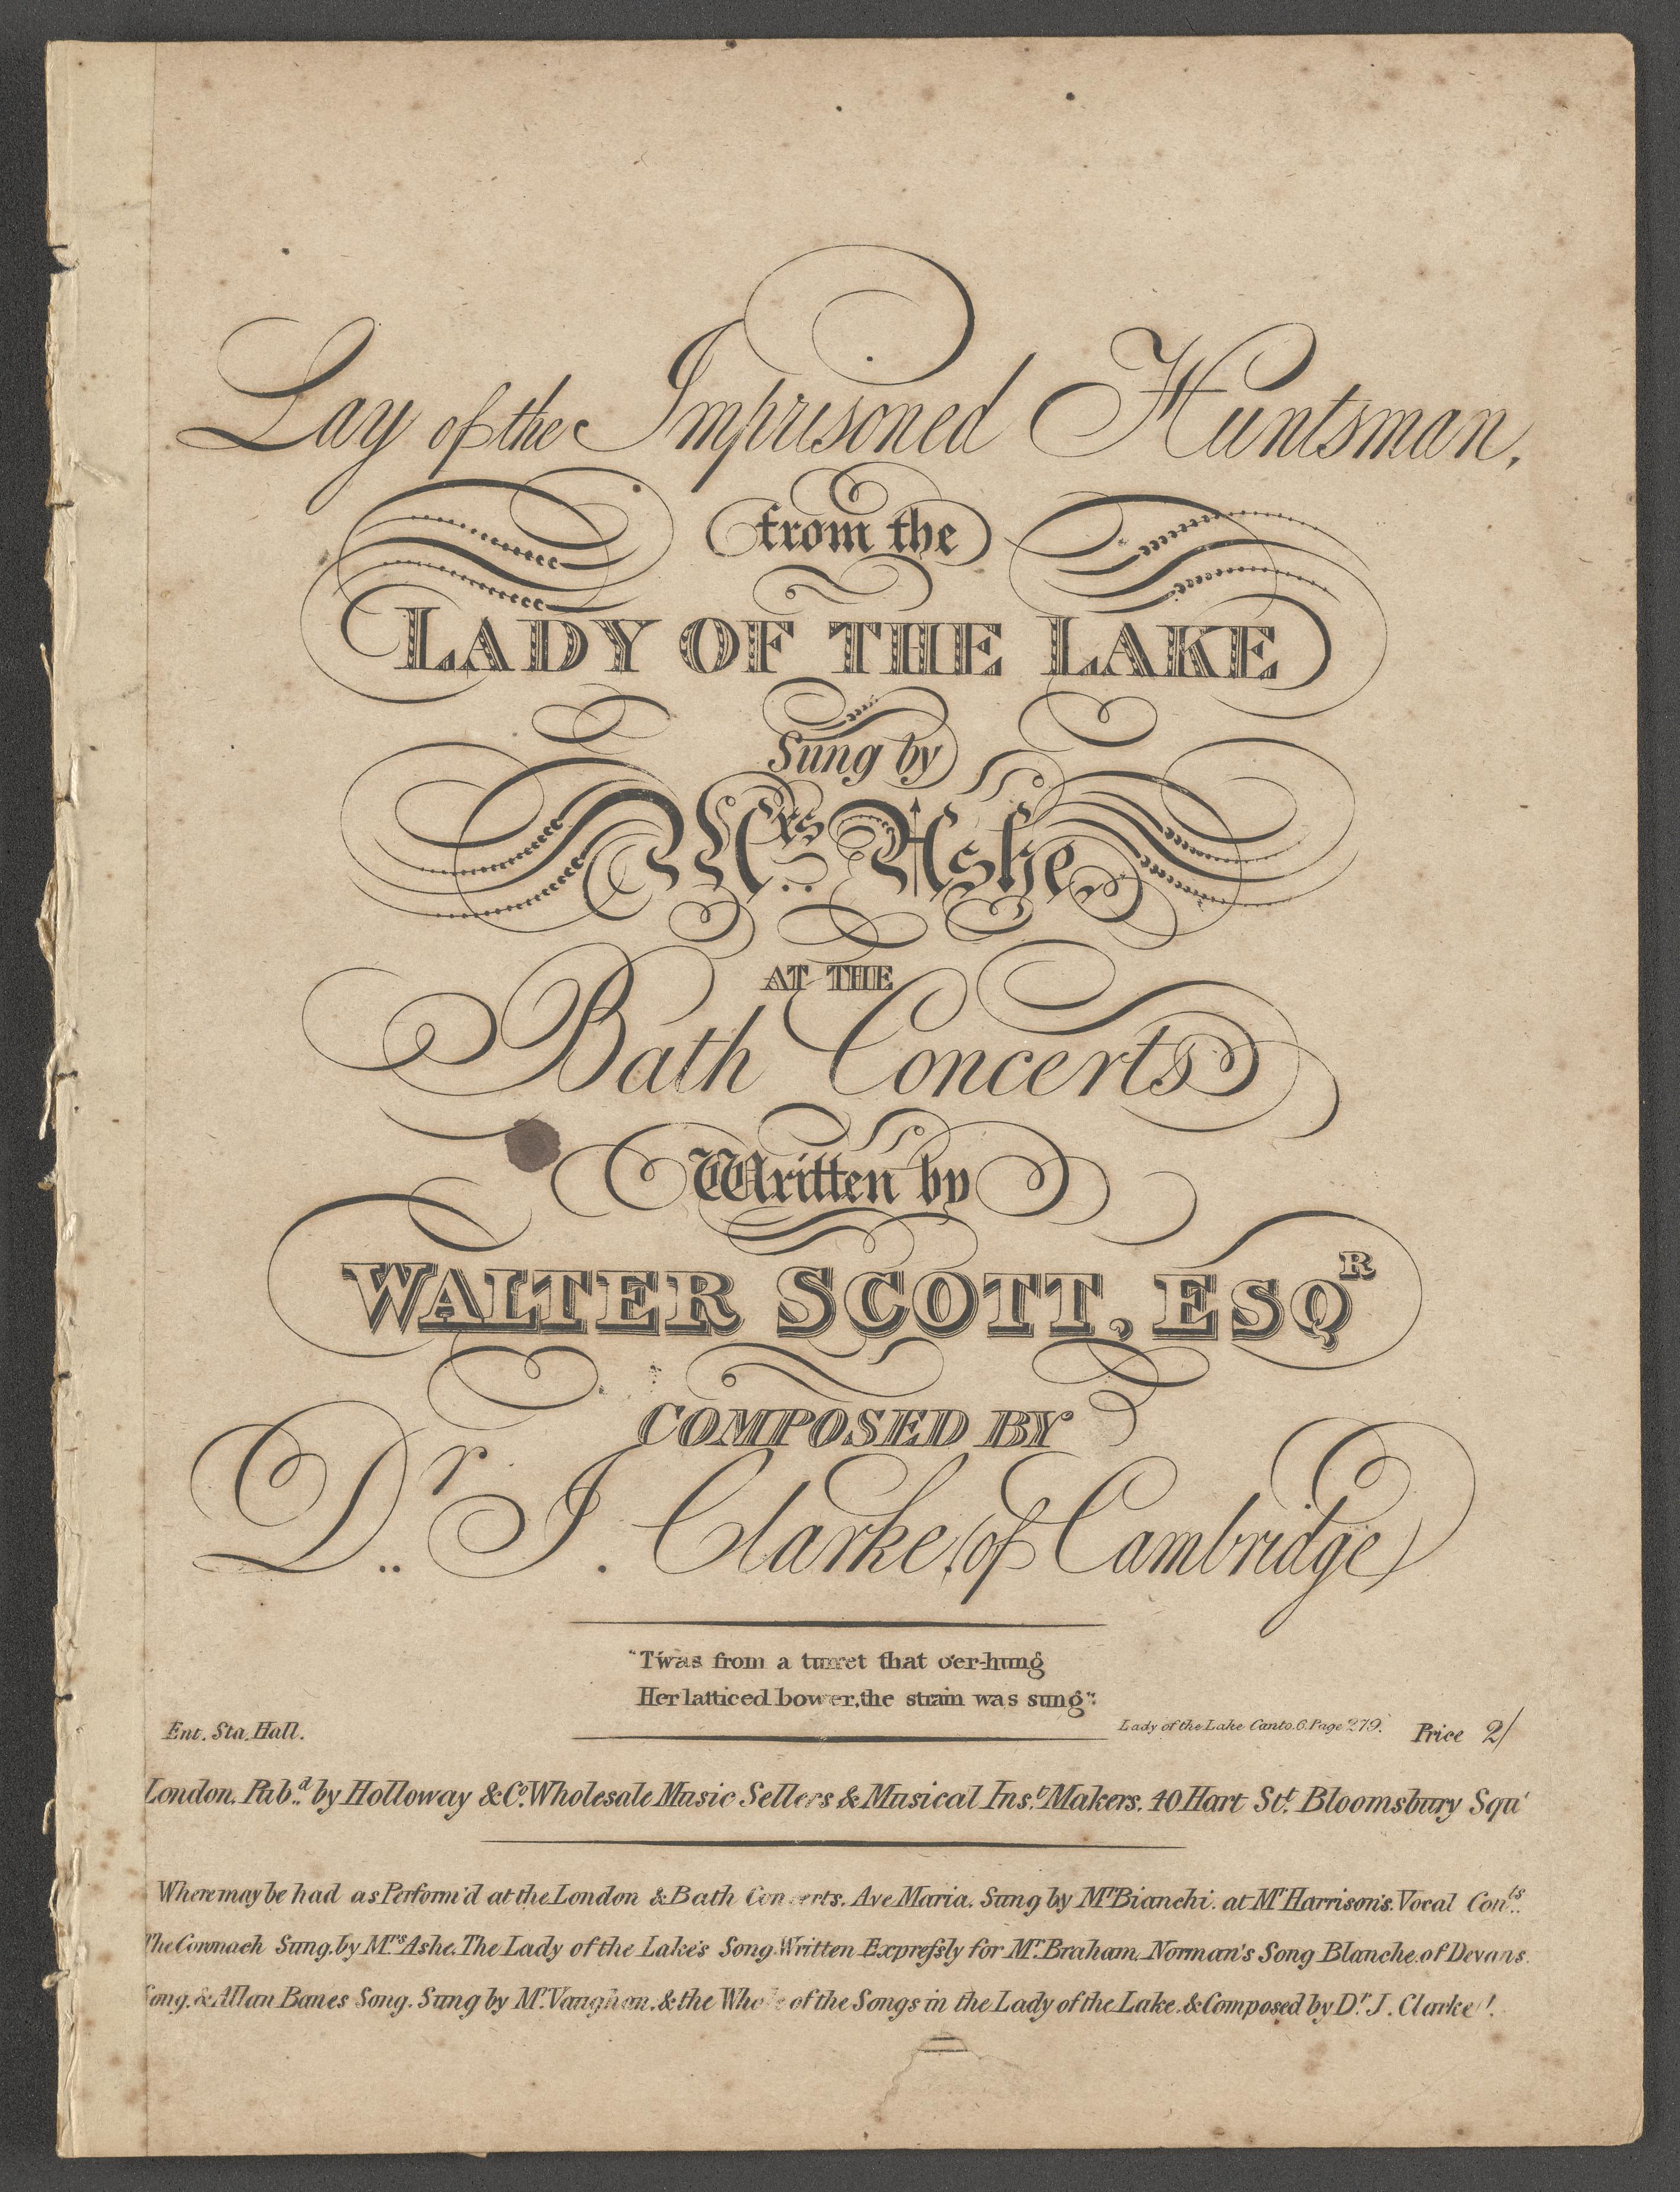 Lay of the Imprisoned Huntsman,
from the
LADY OF THE LAKE
Sung by
Mrs. Ashe,
AT THE
Bath Concerts
Written by
WALTER SCOTT, ESQR
COMPOSED BY
Dr.. J. Clarke, (of Cambridge)
"Twas from a turret that o'er-hung
Her latticed bower, the strain was sung".
Lady of the Lake Canto. 6. Page 279.
Ent. Sta. Hall.
Price 2/
London. Pub.d by Holloway & Co. Wholesale Music Sellers & Musical Ins.t Makers. 40 Hart St.t Bloomsbury Squ
Where may be had as Perform'd at the London & Bath Concerts. Ave Maria. Sung by Mr Bianchi. at Mr Harrison's. Vocal Conts..
The Coronach Sung. by Mrs Ashe. The Lady of the Lake's Song. Written Expreſsly for Mr Braham. Norman's Song Blanche. of Devans.
Song. & Allan Banes Song. Sung by Mr. Vaughan. & the Whole of the Songs in the Lady of the Lake. & Composed by Dr. J. Clarke